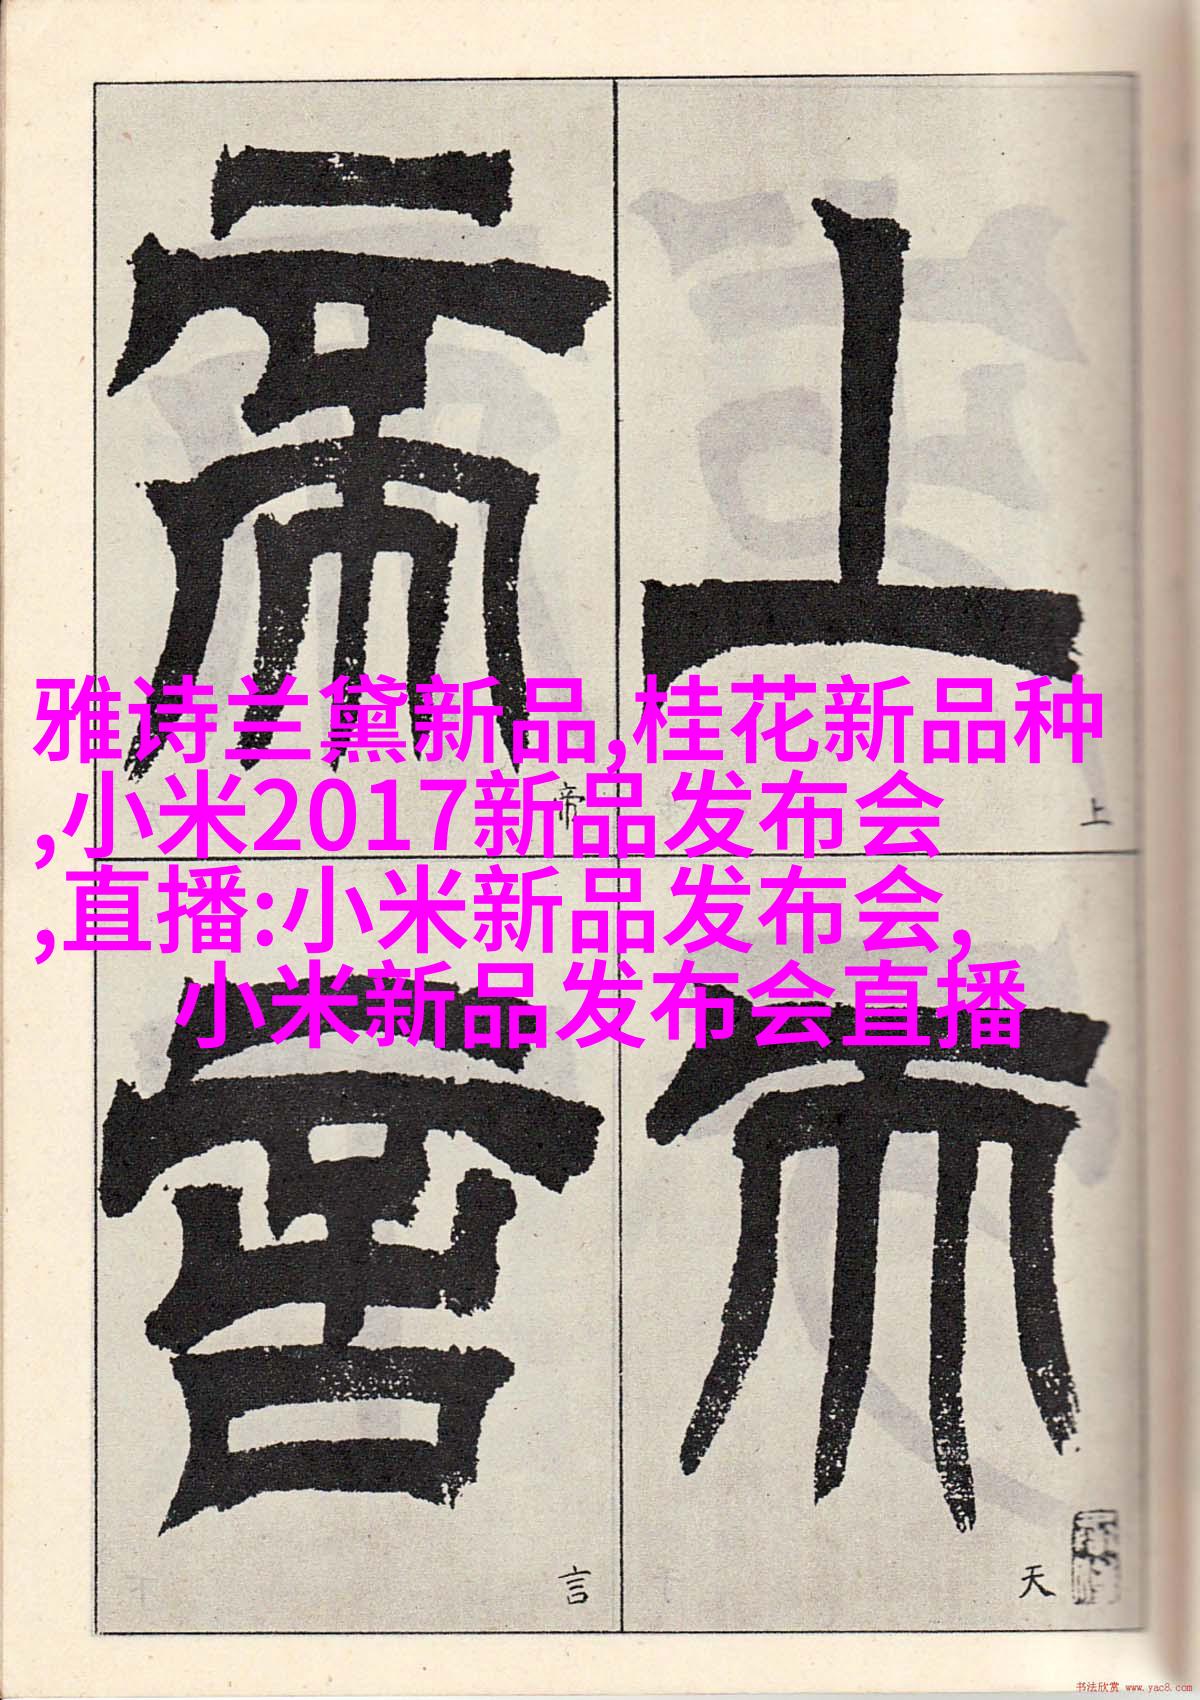 上
天
帝
言
雅诗兰黛新品,桂花新品种
,小米2017新品发布会
,直播:小米新品发布会,
小米新品发布会直播
上
帝
天
言
书法欣赏 www.yac8.com